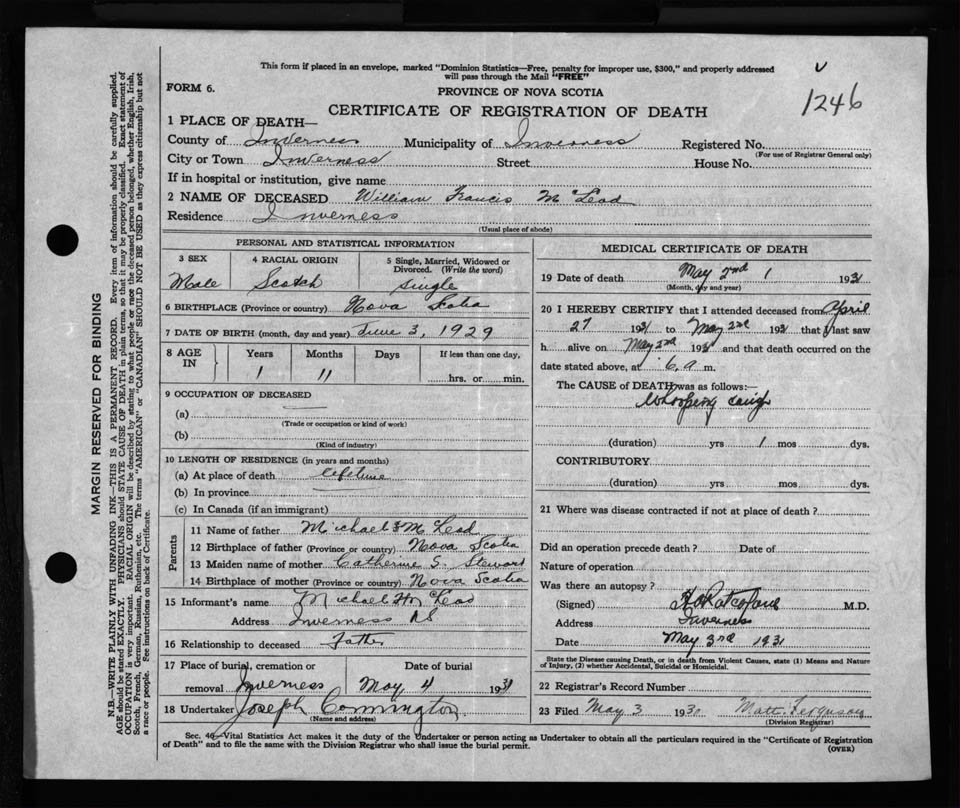 This form if placed in an envelope, marked "Dominion Statistics—Free, penalty for improper use, $300," and properly addressed
will pass through the Mail "FREE"
FORM 6.
PROVINCE OF NOVA SCOTIA
1246
CERTIFICATE OF REGISTRATION OF DEATH
1 PLACE OF DEATH—
County of Inverness Municipality of Inverness Registered No.
(For use of Registrar General only)
City or Town Inverness Street House No.
If in hospital or institution, give name
2 NAME OF DECEASED William Francis McLeod
Residence Inverness
(Usual place of abode)
PERSONAL AND STATISTICAL INFORMATION
3 SEX 4 RACIAL ORIGIN 5 Single, Married, Widowed or
Divorced. (Write the word)
Male Scotch single
6 BIRTHPLACE (Province or country) Nova Scotia
7 DATE OF BIRTH (month, day and year) June 3, 1929
8 AGE IN Years Months Days If less than one day,
1 11 hrs. or min.
9 OCCUPATION OF DECEASED
(a)
(Trade or occupation or kind of work)
(b)
(Kind of industry)
10 LENGTH OF RESIDENCE (in years and months)
(a) At place of death lifetime
(b) In province
(c) In Canada (if an immigrant)
Parents
11 Name of father Michael McLeod
12 Birthplace of father (Province or country) Nova Scotia
13 Maiden name of mother Catherine S. Stewart
14 Birthplace of mother (Province or country) Nova Scotia
15 Informant's name Michael McLeod
Address Inverness NS
16 Relationship to deceased Father
17 Place of burial, cremation or Date of burial
removal Inverness May 4 1931
18 Undertaker Joseph
(Name and address)
MEDICAL CERTIFICATE OF DEATH
19 Date of death May 2nd 1931
(Month, day and year)
20 I HEREBY CERTIFY that I attended deceased from April
27 1931 to May 2nd 1931 that I last saw
h alive on May 2nd 1931 and that death occurred on the
date stated above, at 6 a m.
The CAUSE of DEATH was as follows:—
Whooping cough
(duration) yrs 1 mos dys.
CONTRIBUTORY
(duration) yrs. mos. dys.
21 Where was disease contracted if not at place of death?
Did an operation precede death? Date of
Nature of operation
Was there an autopsy?
(Signed) M.D.
Address Inverness
Date May 3rd 1931
State the Disease causing Death, or in death from Violent Causes, state (1) Means and Nature
of Injury, (2) whether Accidental, Suicidal or Homicidal.
22 Registrar's Record Number
23 Filed May 3 193 Matt. Ferguson
(Division Registrar)
Sec. 40—Vital Statistics Act makes it the duty of the Undertaker or person acting as Undertaker to obtain all the particulars required in the "Certificate of Registration
of Death" and to file the same with the Division Registrar who shall issue the burial permit.
(OVER)
MARGIN RESERVED FOR BINDING
N.B.—WRITE PLAINLY WITH UNFADING INK—THIS IS A PERMANENT RECORD. Every item of information should be carefully supplied.
AGE should be stated EXACTLY. PHYSICIANS should STATE CAUSE OF DEATH in plain terms, so that it may be properly classified. Exact statement of
OCCUPATION is very important. RACIAL ORIGIN will be described by stating to what people or race the deceased person belonged, whether English, Irish,
Scotch, French, German, Russian, Ruthenian, etc. The terms "AMERICAN" or "CANADIAN" SHOULD NOT BE USED as they express citizenship but not
a race or people. See instructions on back of Certificate.